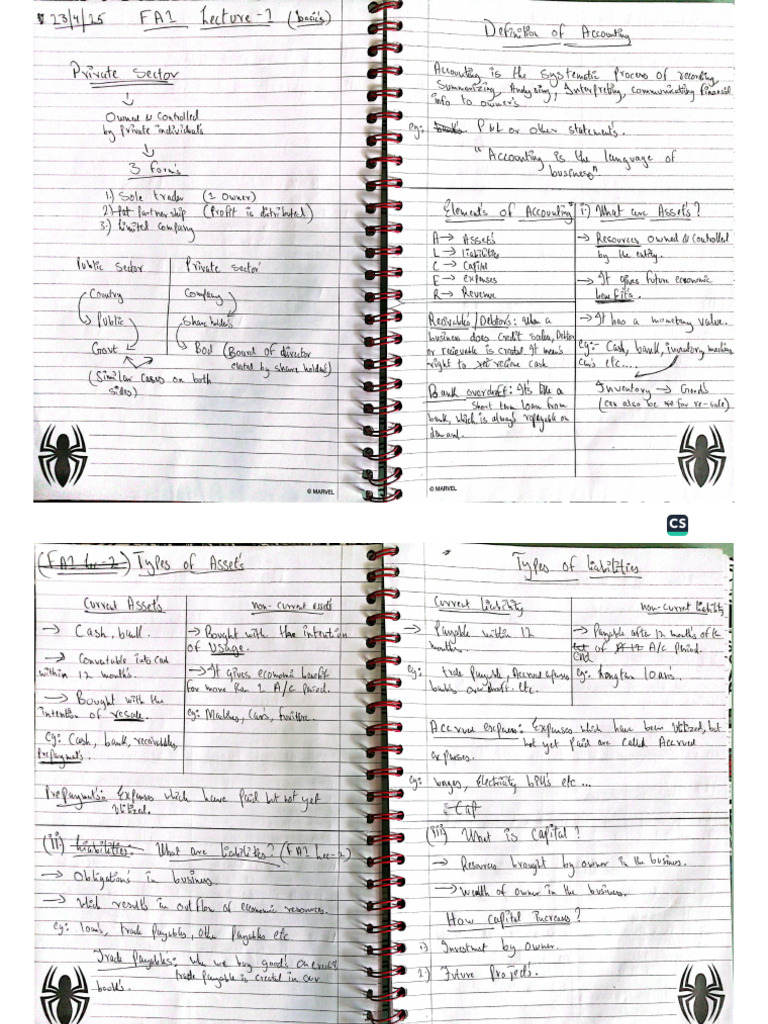 23/4/25 FA1 Lecture-1 (basics)
Private Sector
Owned & Controlled
by Private individuals
3 forms
1) Sole trader (1 owner)
2) partnership (Profit is distributed)
3) Limited Company
Public Sector Private Sector
Country Company
Public Share holders
Govt BoD (Board of director
elected by share holders)
(Similar cases on both
sides)
© MARVEL
Definition of Accounting
Accounting is the systematic process of recording
Summarizing, Analysing, Interpreting, communicating financial
info to owner's
eg: P&L or other statements.
"Accounting is the language of
business"
Elements of Accounting
A → Assets
L → liabilities
C → Capital
E → expenses
R → Revenue
Recivables/Debtors: When a
business does credit sales, Debtor
or recievable is created. It means
right to recieve cash
Bank overdraft: It's like a
short term loan from
bank, which is always repayable on
demand.
i) What are Assets?
→ Resources owned & Controlled
by the entity.
→ It gives future economic
benefits.
→ It has a monetary value.
eg:- Cash, bank, inventory, machine
Cars etc...
Inventory → Goods
(can also be for re-sale)
© MARVEL
CS
(FA1 lec-2) Types of Assets
Current Assets
→ Cash, bank.
→ Convertable into cash
within 12 months.
→ Bought with the
intention of resale.
eg: Cash, bank, receivables,
Prepayments.
non-current assets
→ Bought with the intention
of usage.
→ It gives economic benefit
for more than 1 A/c period.
eg: Machines, Cars, furniture.
Prepayments: Expenses which have paid but not yet
utilized.
(ii) Liabilities: What are liabilities? (FA1 lec-2)
→ Obligations in business.
→ Which results in outflow of economic resources.
eg: loans, trade payables, other payables etc.
Trade Payables: When we buy goods on credit
trade payable is created in our
books.
Types of liabilities
Current liability
→ Payable within 12
months.
eg: trade payable, Accrued expenses
bank overdraft. etc.
non-current liability
→ Payable after 12 months of the
end of A/C period.
eg: long term loans.
Accrued expenses: Expenses which have been utilized, but
not yet paid are called Accrued
expenses.
eg: wages, Electricity bills etc...
Cap
(iii) What is Capital?
→ Resources brought by owner in the business.
→ Wealth of owner in the business.
How capital increases?
1) Investment by owner.
2) Future Projects.